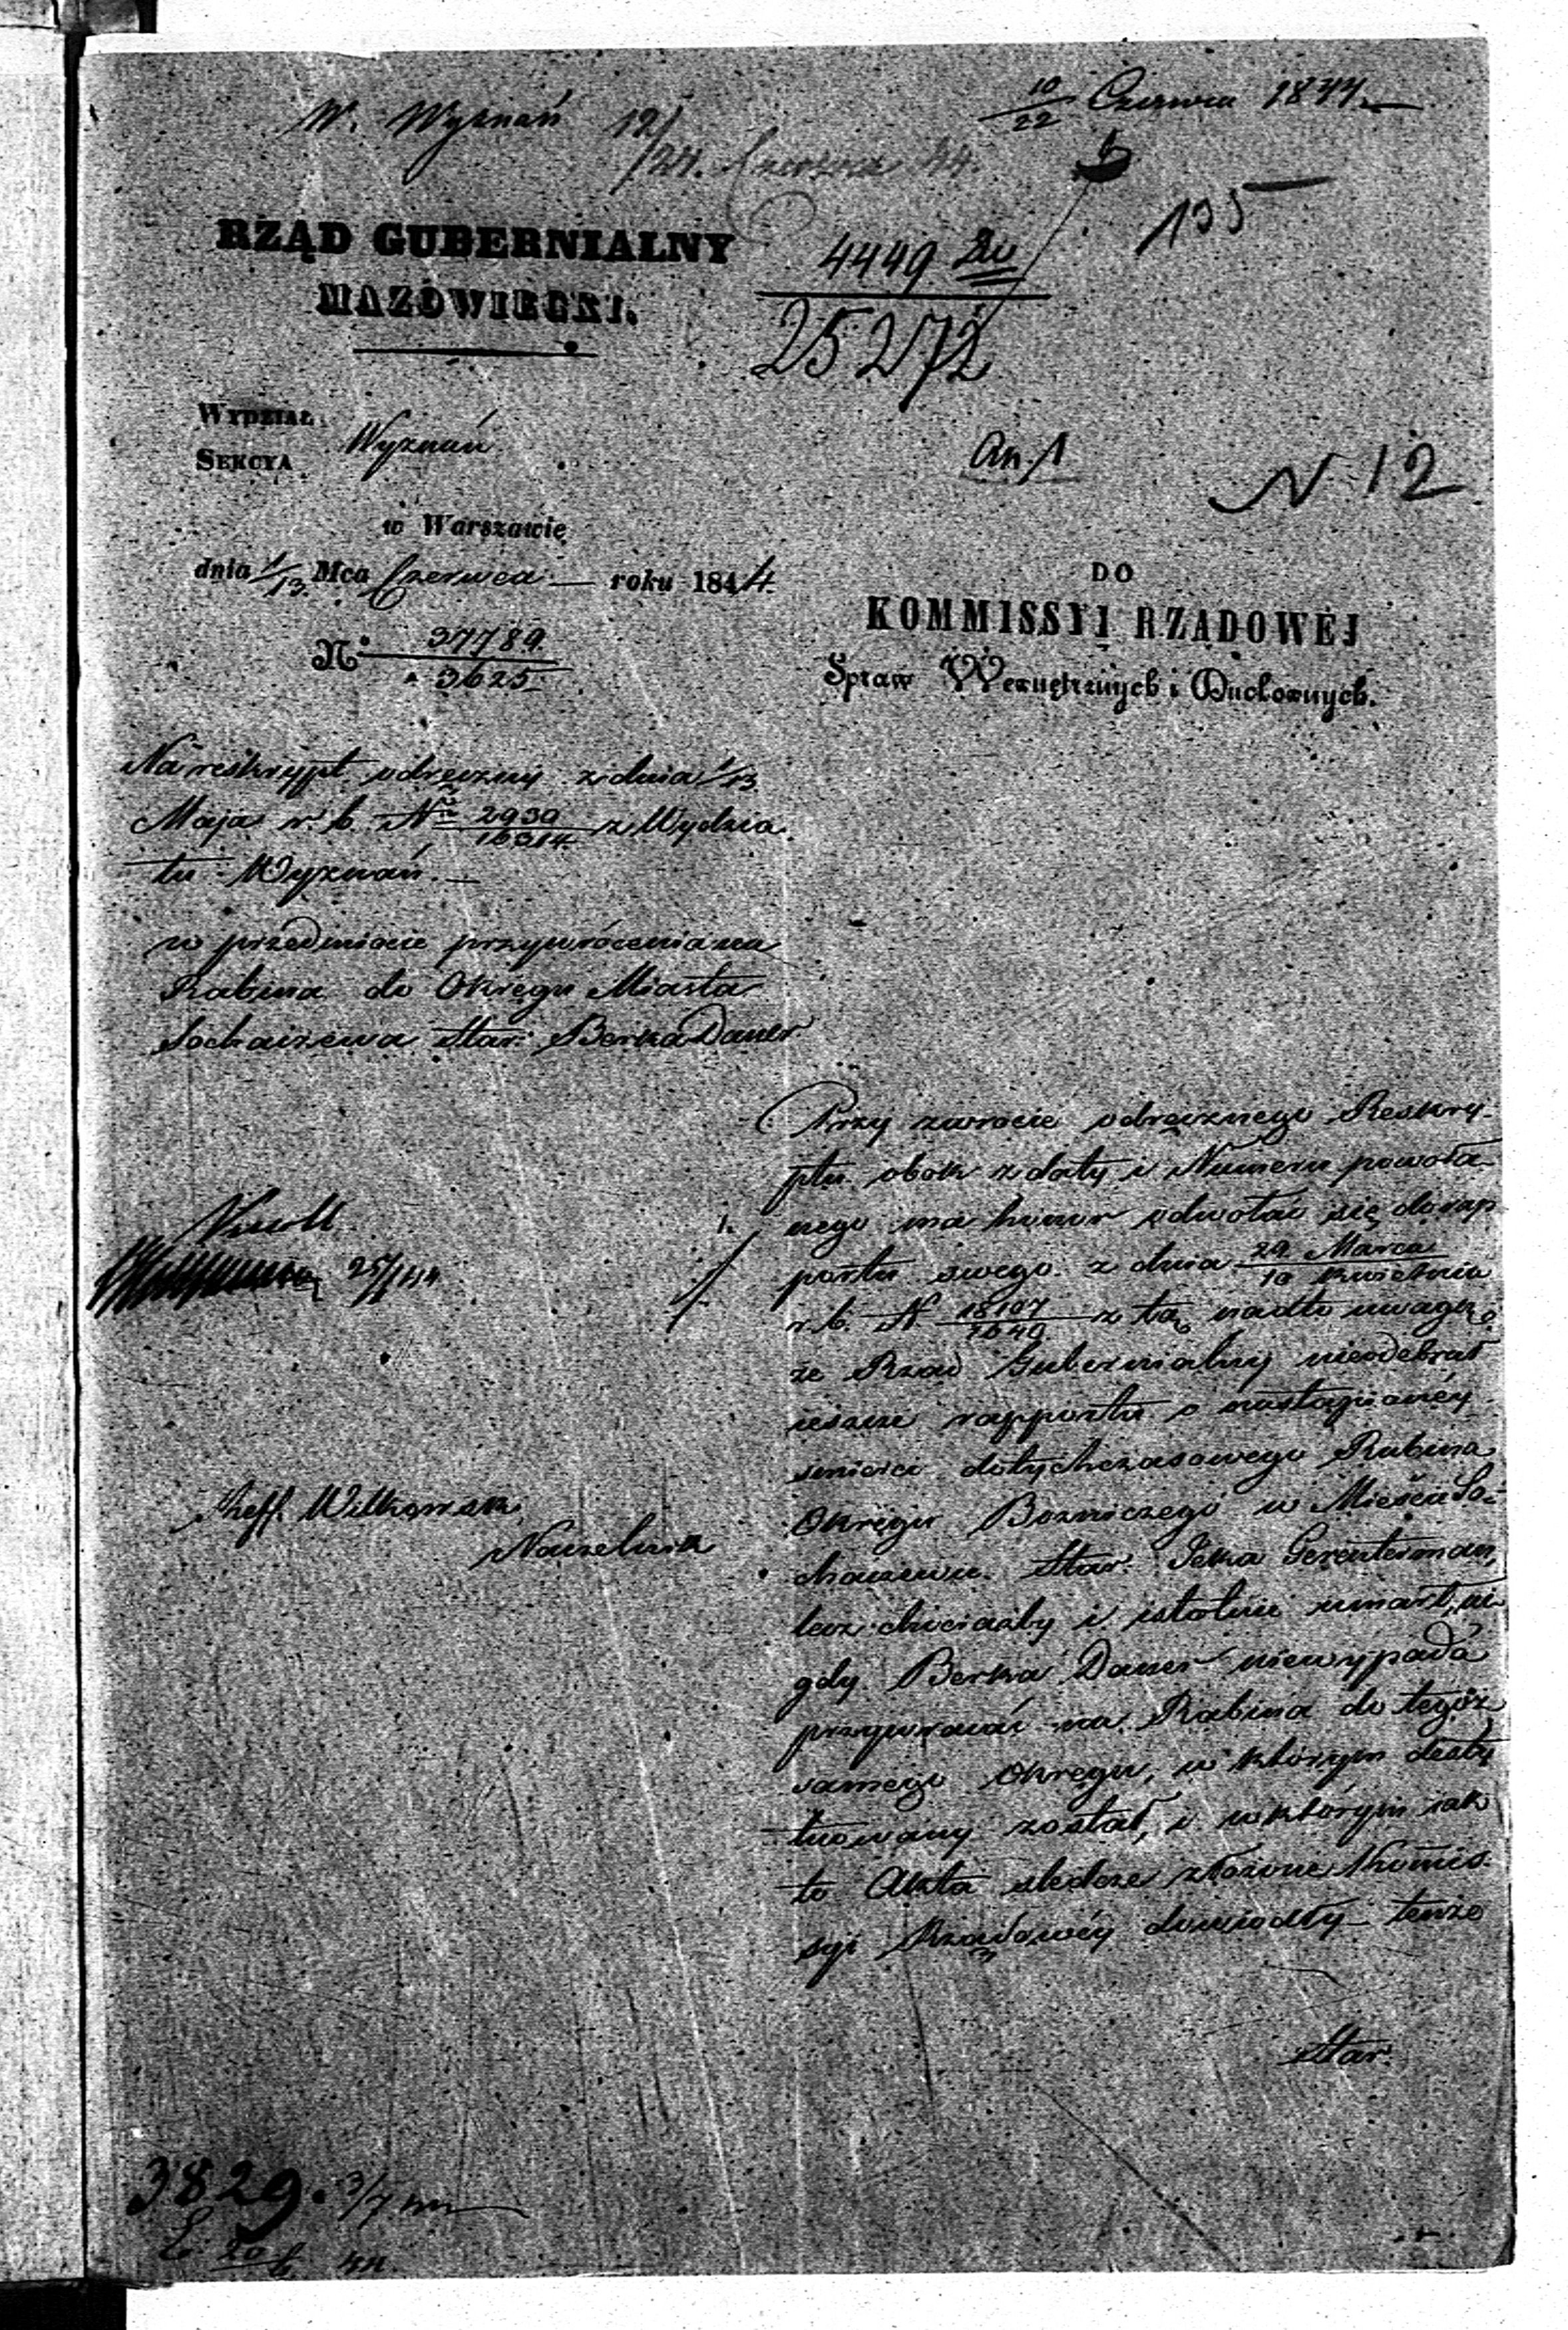 10/22 Czerwca 1844
W. Wyznań 12/24. Czerwca 44.
135
RZĄD GUBERNIALNY
MAZOWIECKI.
4449
25272
WYDZIAŁ
SEKCYA Wyznań
an. 1
N 12
w Warszawie
dnia 1/13 Mca Czerwca roku 1844.
N° 37789
3625
DO
KOMMISSYI RZĄDOWÉJ
Spraw Wewnętrznych i Duchownych.
Na reskrypt odręczny z dnia 1/13
Maja r. b. N° 2930/16314 z Wydzia
łu Wyznań.
w przedmiocie przywrócenia na
Rabina do Okręgu Miasta
Sochaczewa Star: Berka Dauer
Przy zwrocie odręcznego Reskry-
ptu obok z daty i Numeru powoła-
nego ma honor odwołać się do rap
portu swego z dnia 29 Marca/10 Kwietnia
r. b. N 18107/1640 z tą nadto uwagą
że Rząd Gubernialny nieodebrał
ieszcze rapportu o nastąpionéy
śmierci dotychczasowego Rabina
Okręgu Bożniczego w Mieście So-
chaczewie Star. Icka
lecz chociażby i istotnie umarł, ni
gdy Berka Dauer niewypada
przywracać na Rabina do tegoż
samego Okręgu, w którym desty
tuowany został, i w którym iak
to Akta śledcze złożone Kommis-
syi Rządowéy dowiodły tenże
Star.
25/6 44
Szeff. Witkowski
Naczelnik
3829. 3/7